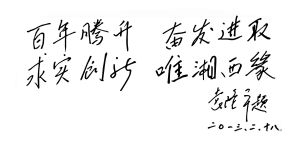 百年腾升 奋发进取
求实创新 唯湘西缘
袁隆平题
二〇一三.二.十八